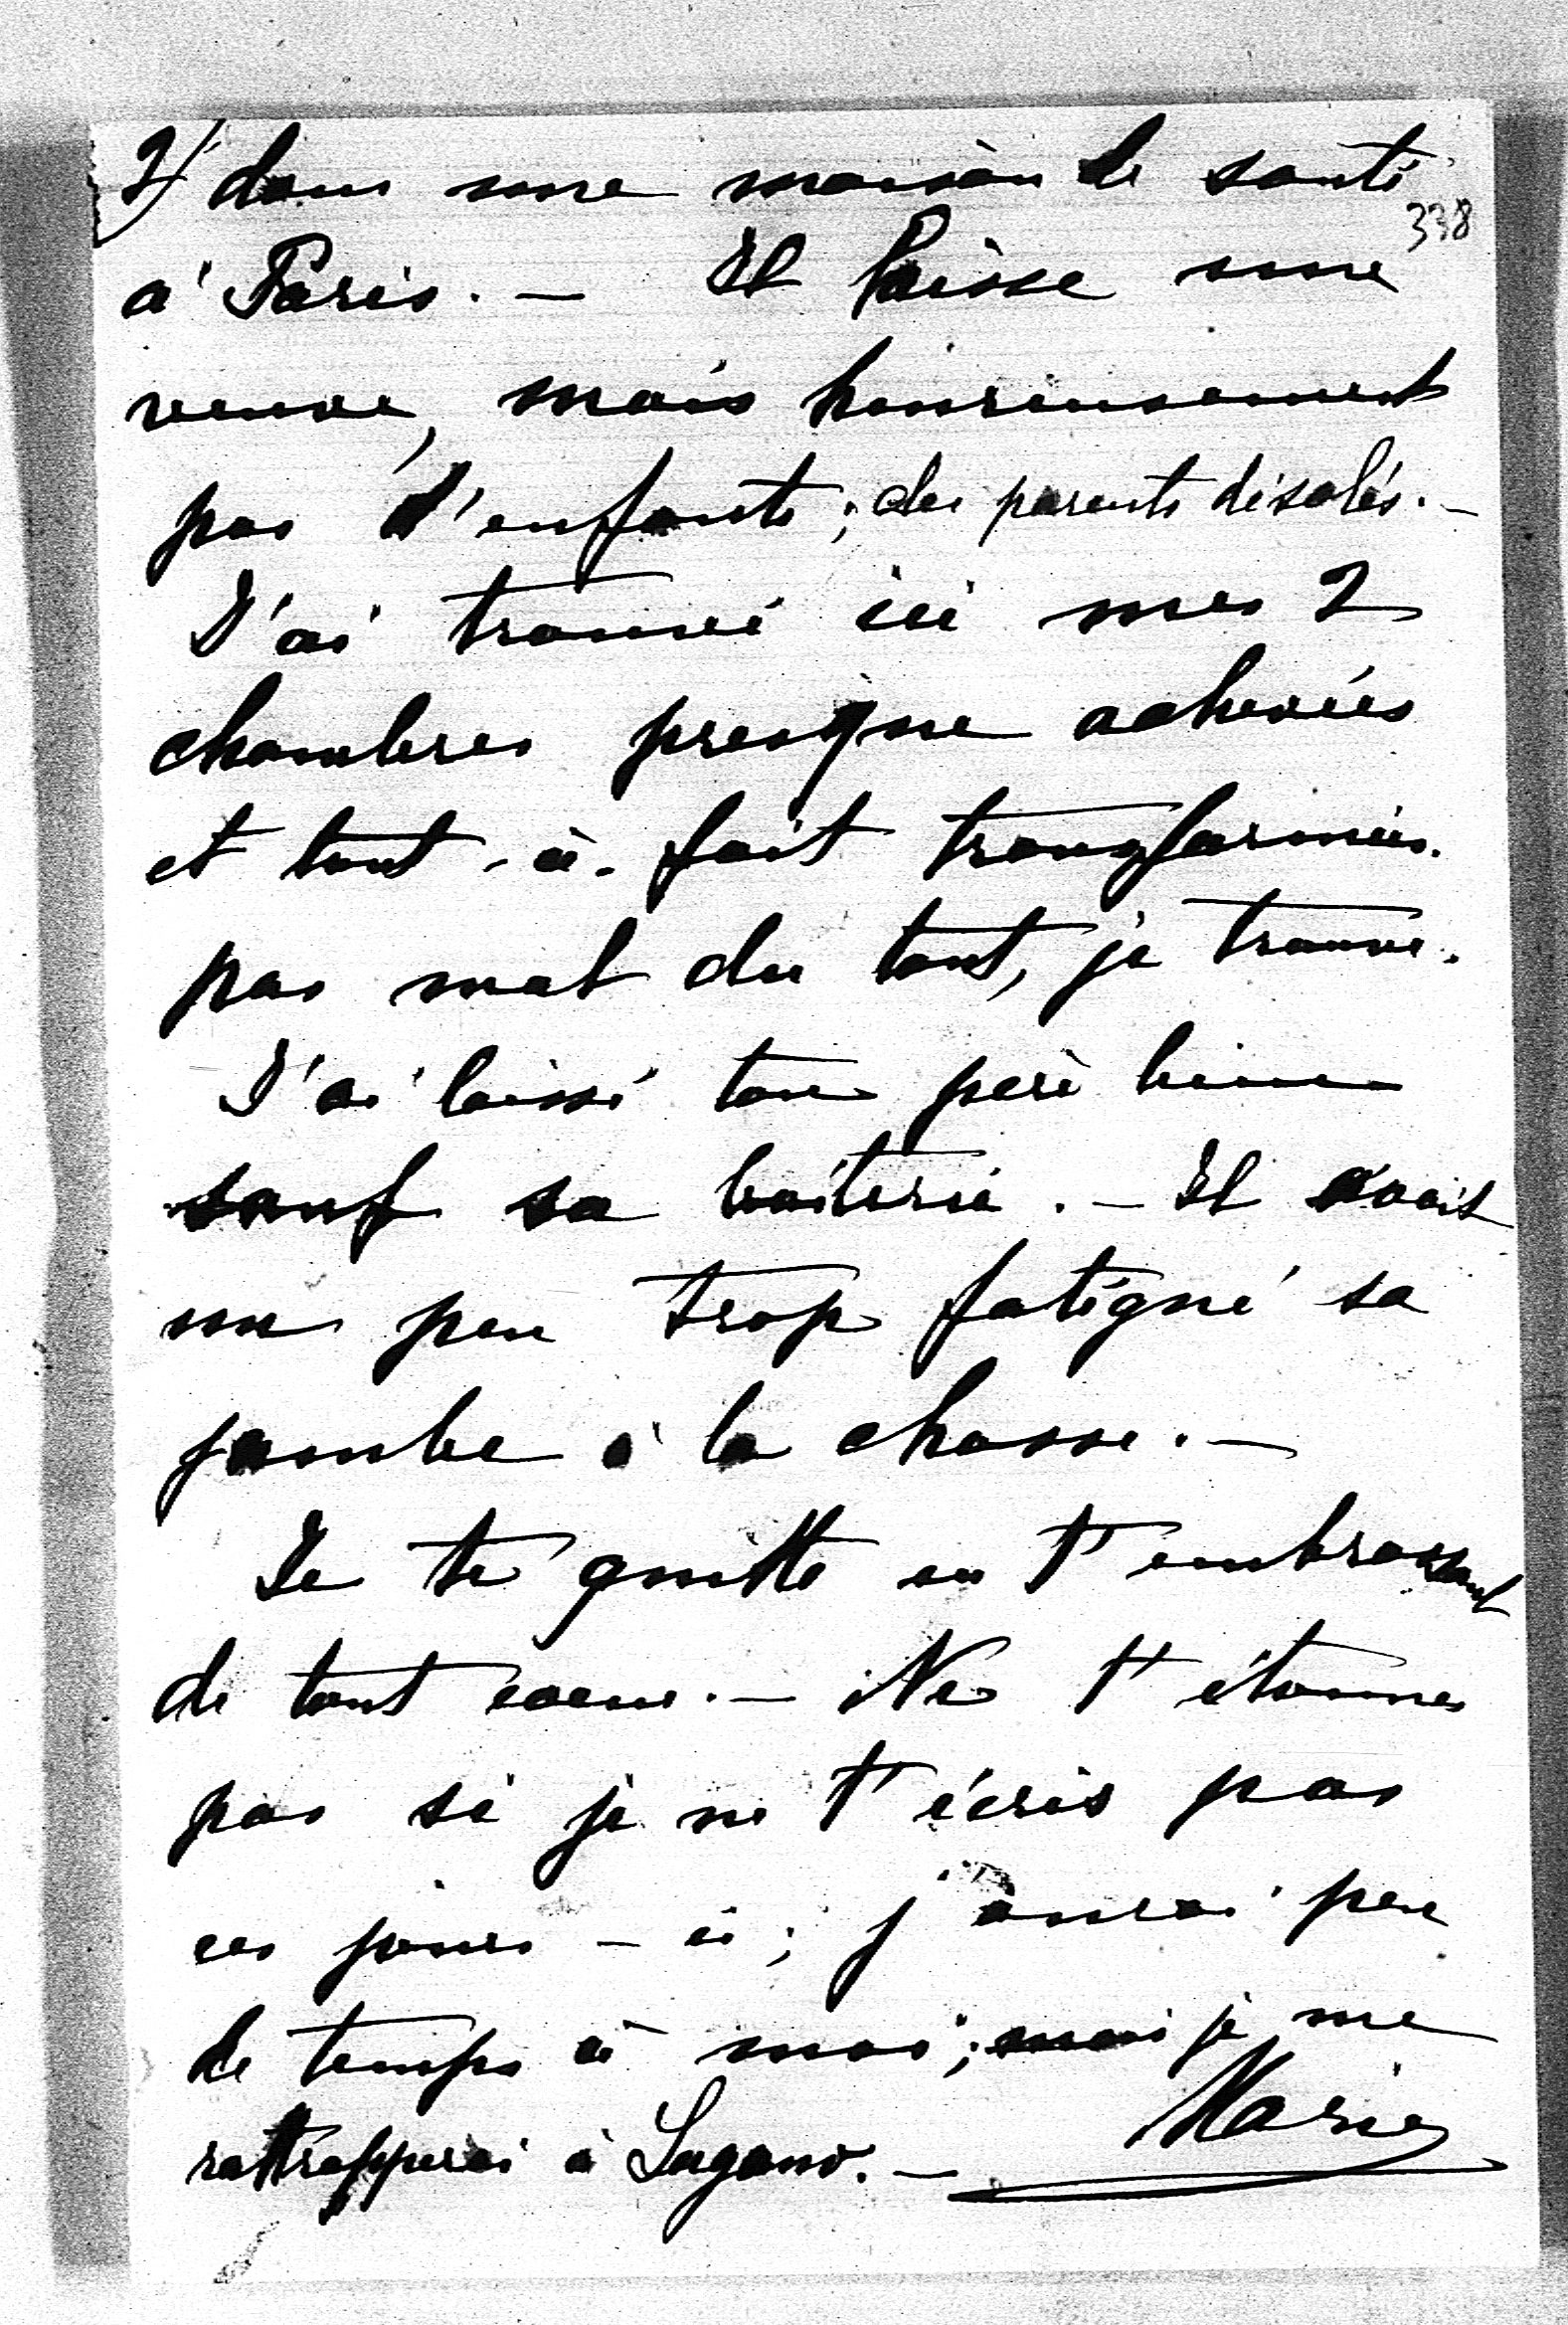 2/ dans une maison de santé
338
à Paris. — Il laisse une
veuve, mais heureusement
pas d'enfants; des parents désolés. —
J'ai trouvé ici mes 2
chambres presque achevées
et tout-à-fait transformées.
pas mal du tout, je trouve.
J'ai laissé ton père bien
sauf sa boiterie. — Il avait
un peu trop fatigué sa
jambe à la chasse. —
Je te quitte en t'embrassant
de tout cœur. — Ne t'étonnes
pas si je ne t'écris pas
ces jours-ci; j'aurai peu
de temps à moi; mais je me
rattrapperai à Lugano. — Marie